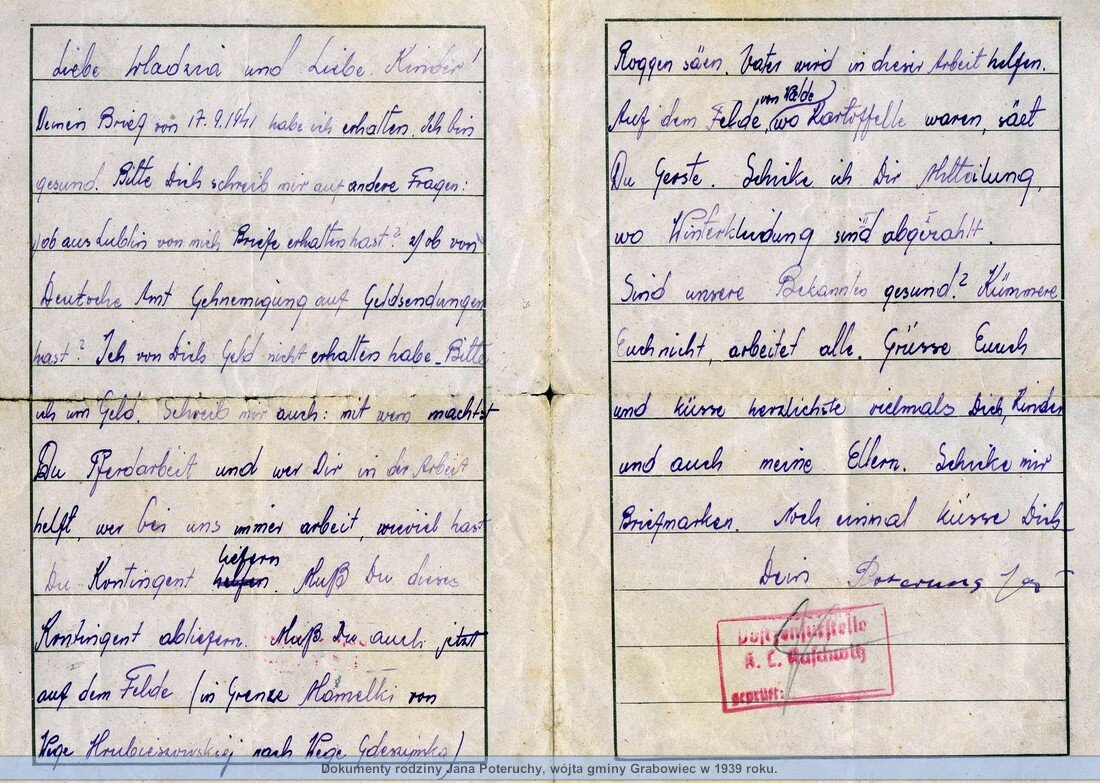 Liebe Wladzia und Liebe Kinder!
Deinen Brief von 17.9.1941 habe ich erhalten. Ich bin
gesund. Bitte Dich schreib mir auf andere Fragen:
ob aus Lublin von mich Briefe erhalten hast? ob von
Deutsche Amt Gehnemigung auf Geldsendungen
hast? Ich von Dich Geld nicht erhalten habe. Bitte
ich um Geld. Schreib mir auch: mit wem machst
Du Pferdarbeit und wer Dir in der Arbeit
helft, wer bei uns immer arbeit, wieviel hast
Du Kontingent liefern. Muß Du dieses
Kontingent abliefern. Muß Du auch jetzt
auf dem Felde (in Grenze Mamelki von
Wege Hrubieszowskiej nach Wege Gdeszynka)
Roggen säen. Vater wird in dieser Arbeit helfen.
Auf dem Felde, wo Kartoffelle waren, säet
Du Gerste. Schicke ich Dir Mitteilung,
wo Winterkleidung sind abgezahlt.
Sind unsere Bekannten gesund? Kümmere
Euch nicht, arbeitet alle. Grüsse Euch
und küsse herzlichste vielmals Dich, Kinder
und auch meine Eltern. Schicke mir
Briefmarken. Noch einmal küsse Dich
Dein
Postzensurstelle
K. L. Auschwitz
geprüft:
Dokumenty rodziny Jana Poteruchy, wójta gminy Grabowiec w 1939 roku.